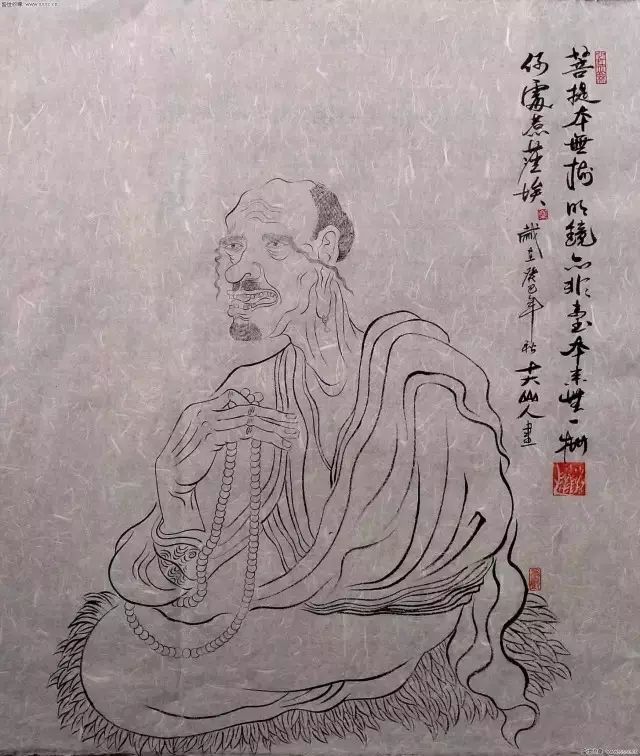 菩提本無樹明鏡亦非臺本來無一物
何處惹塵埃 歲在癸巳年秋 仙人畫